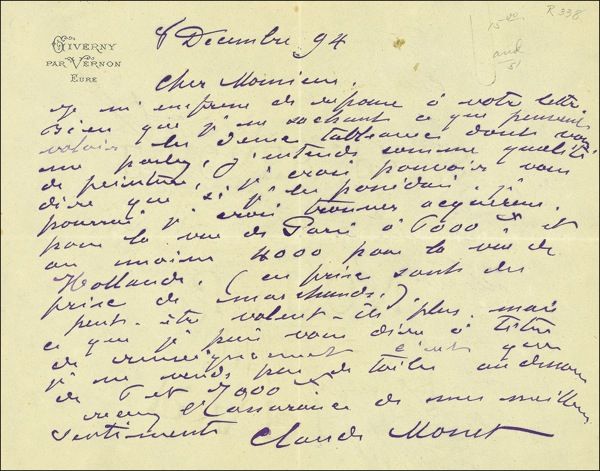 R 338
15-40
and
GIVERNY
PAR VERNON
EURE
8 Decembre 94
Cher Monsieur.
Je m'empresse de répondre à votre lettre.
Bien que j'en sachant ce que peuvent
valoir les deux tableaux dont vous
me parlez, j'entends comme qualité
de peinture, je crois pouvoir vous
dire que si j' les possédais, je
pourrais je crois trouver acquéreur
pour la vue de Paris à 6000 f et
au moins 4000 pour la vue de
Hollande. (ces prix sont des
prix de marchands.)
peut-être valent-ils plus, mais
ce que je puis vous dire à titre
de renseignement c'est que
je ne vends pas de toiles au dessous
de 6 et 7000
recevez l'assurance de mes meilleurs
sentiments Claude Monet